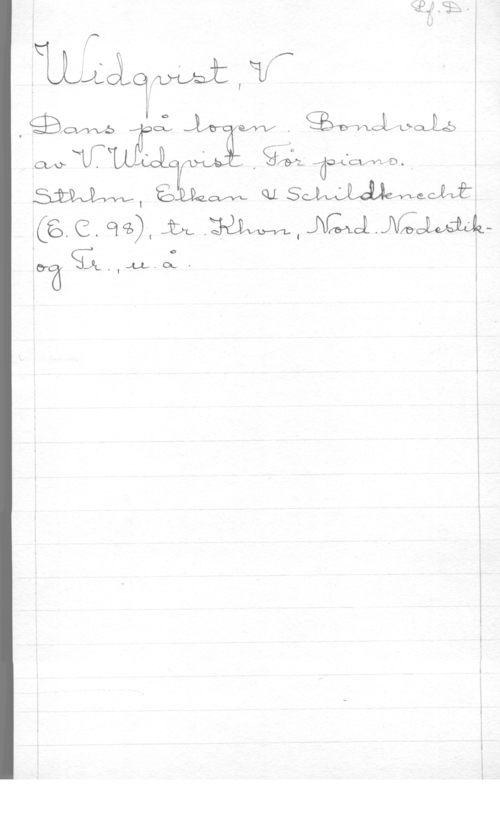 Pf. D.
Widqvist, V
Dans på logen. Bondvals
av V. Widqvist. För piano.
Sthlm, Elkan & Schildknecht
(E. C. 98), tr. Khvn, Nord. Nodestik-
og Tr., u. å.